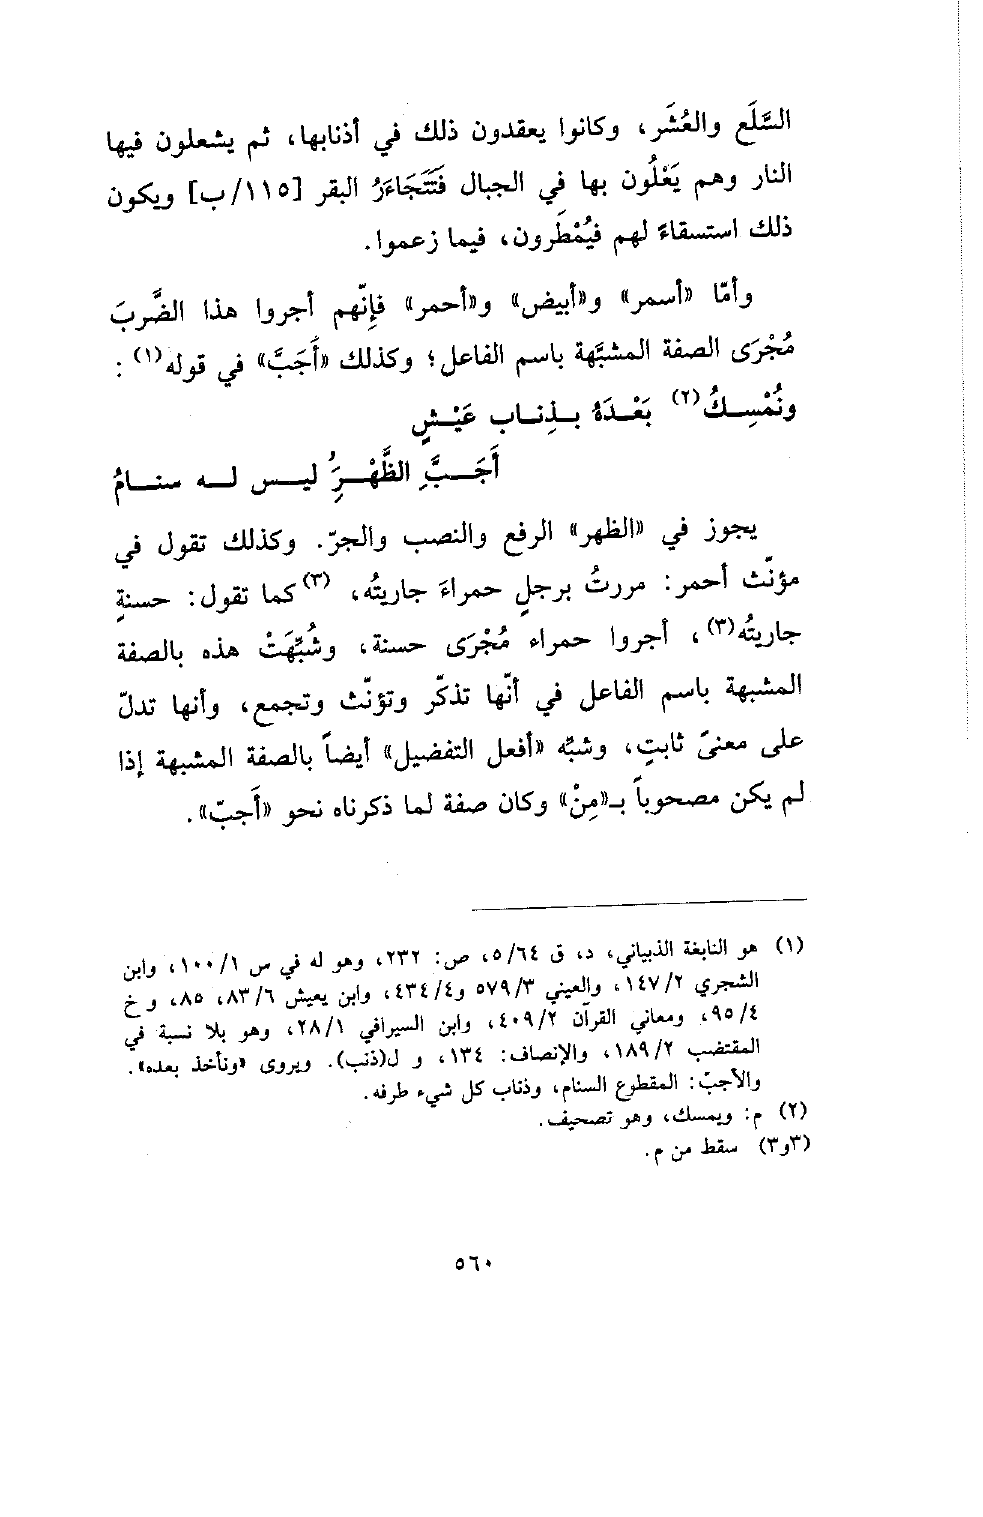 السَّلَع والعُشَر، وكانوا يعقدون ذلك في أذنابها، ثم يشعلون فيها
النار وهم يَعْلُون بها في الجبال فَتَتَجَاءَرُ البقر [١١٥/ب] ويكون
ذلك استسقاءً لهم فيُمْطَرون، فيما زعموا.
وأمّا «أسمر» و«أبيض» و«أحمر» فإنّهم أجروا هذا الضَّربَ
مُجْرَى الصفة المشبَّهة باسم الفاعل؛ وكذلك «أَجَبَّ» في قوله(١) :
ونُمْسِـكُ(٢) بَعْـدَهُ بـذِنـاب عَيْـشٍ
أَجَـبَّ الظَّهْـرَُِ ليـس لـه سنـامُ
يجوز في «الظهر» الرفع والنصب والجرّ. وكذلك تقول في
مؤنّث أحمر: مررتُ برجلٍ حمراءَ جاريتُه، (٣)كما تقول: حسنةٍ
جاريتُه(٣)، أجروا حمراء مُجْرَى حسنة، وشُبِّهَتْ هذه بالصفة
المشبهة باسم الفاعل في أنّها تذكّر وتؤنّث وتجمع، وأنها تدلّ
على معنىً ثابتٍ، وشبِّه «أفعل التفضيل» أيضاً بالصفة المشبهة إذا
لم يكن مصحوباً بـ«مِنْ» وكان صفة لما ذكرناه نحو «أَجبّ».
(١) هو النابغة الذبياني، د، ق ٥/٦٤، ص: ٢٣٢، وهو له في س ١٠٠/١، وابن
الشجري ١٤٧/٢، والعيني ٥٧٩/٣ و٤٣٤/٤، وابن يعيش ٨٣/٦، ٨٥، و خ
٩٥/٤، ومعاني القرآن ٤٠٩/٢، وابن السيرافي ٢٨/١، وهو بلا نسبة في
المقتضب ١٨٩/٢، والإنصاف: ١٣٤، و ل(ذنب). ويروى «ونأخذ بعده».
والأجبّ: المقطوع السنام، وذناب كل شيء طرفه.
(٢) م: ويمسك، وهو تصحيف.
(٣و٣) سقط من م.
٥٦٠